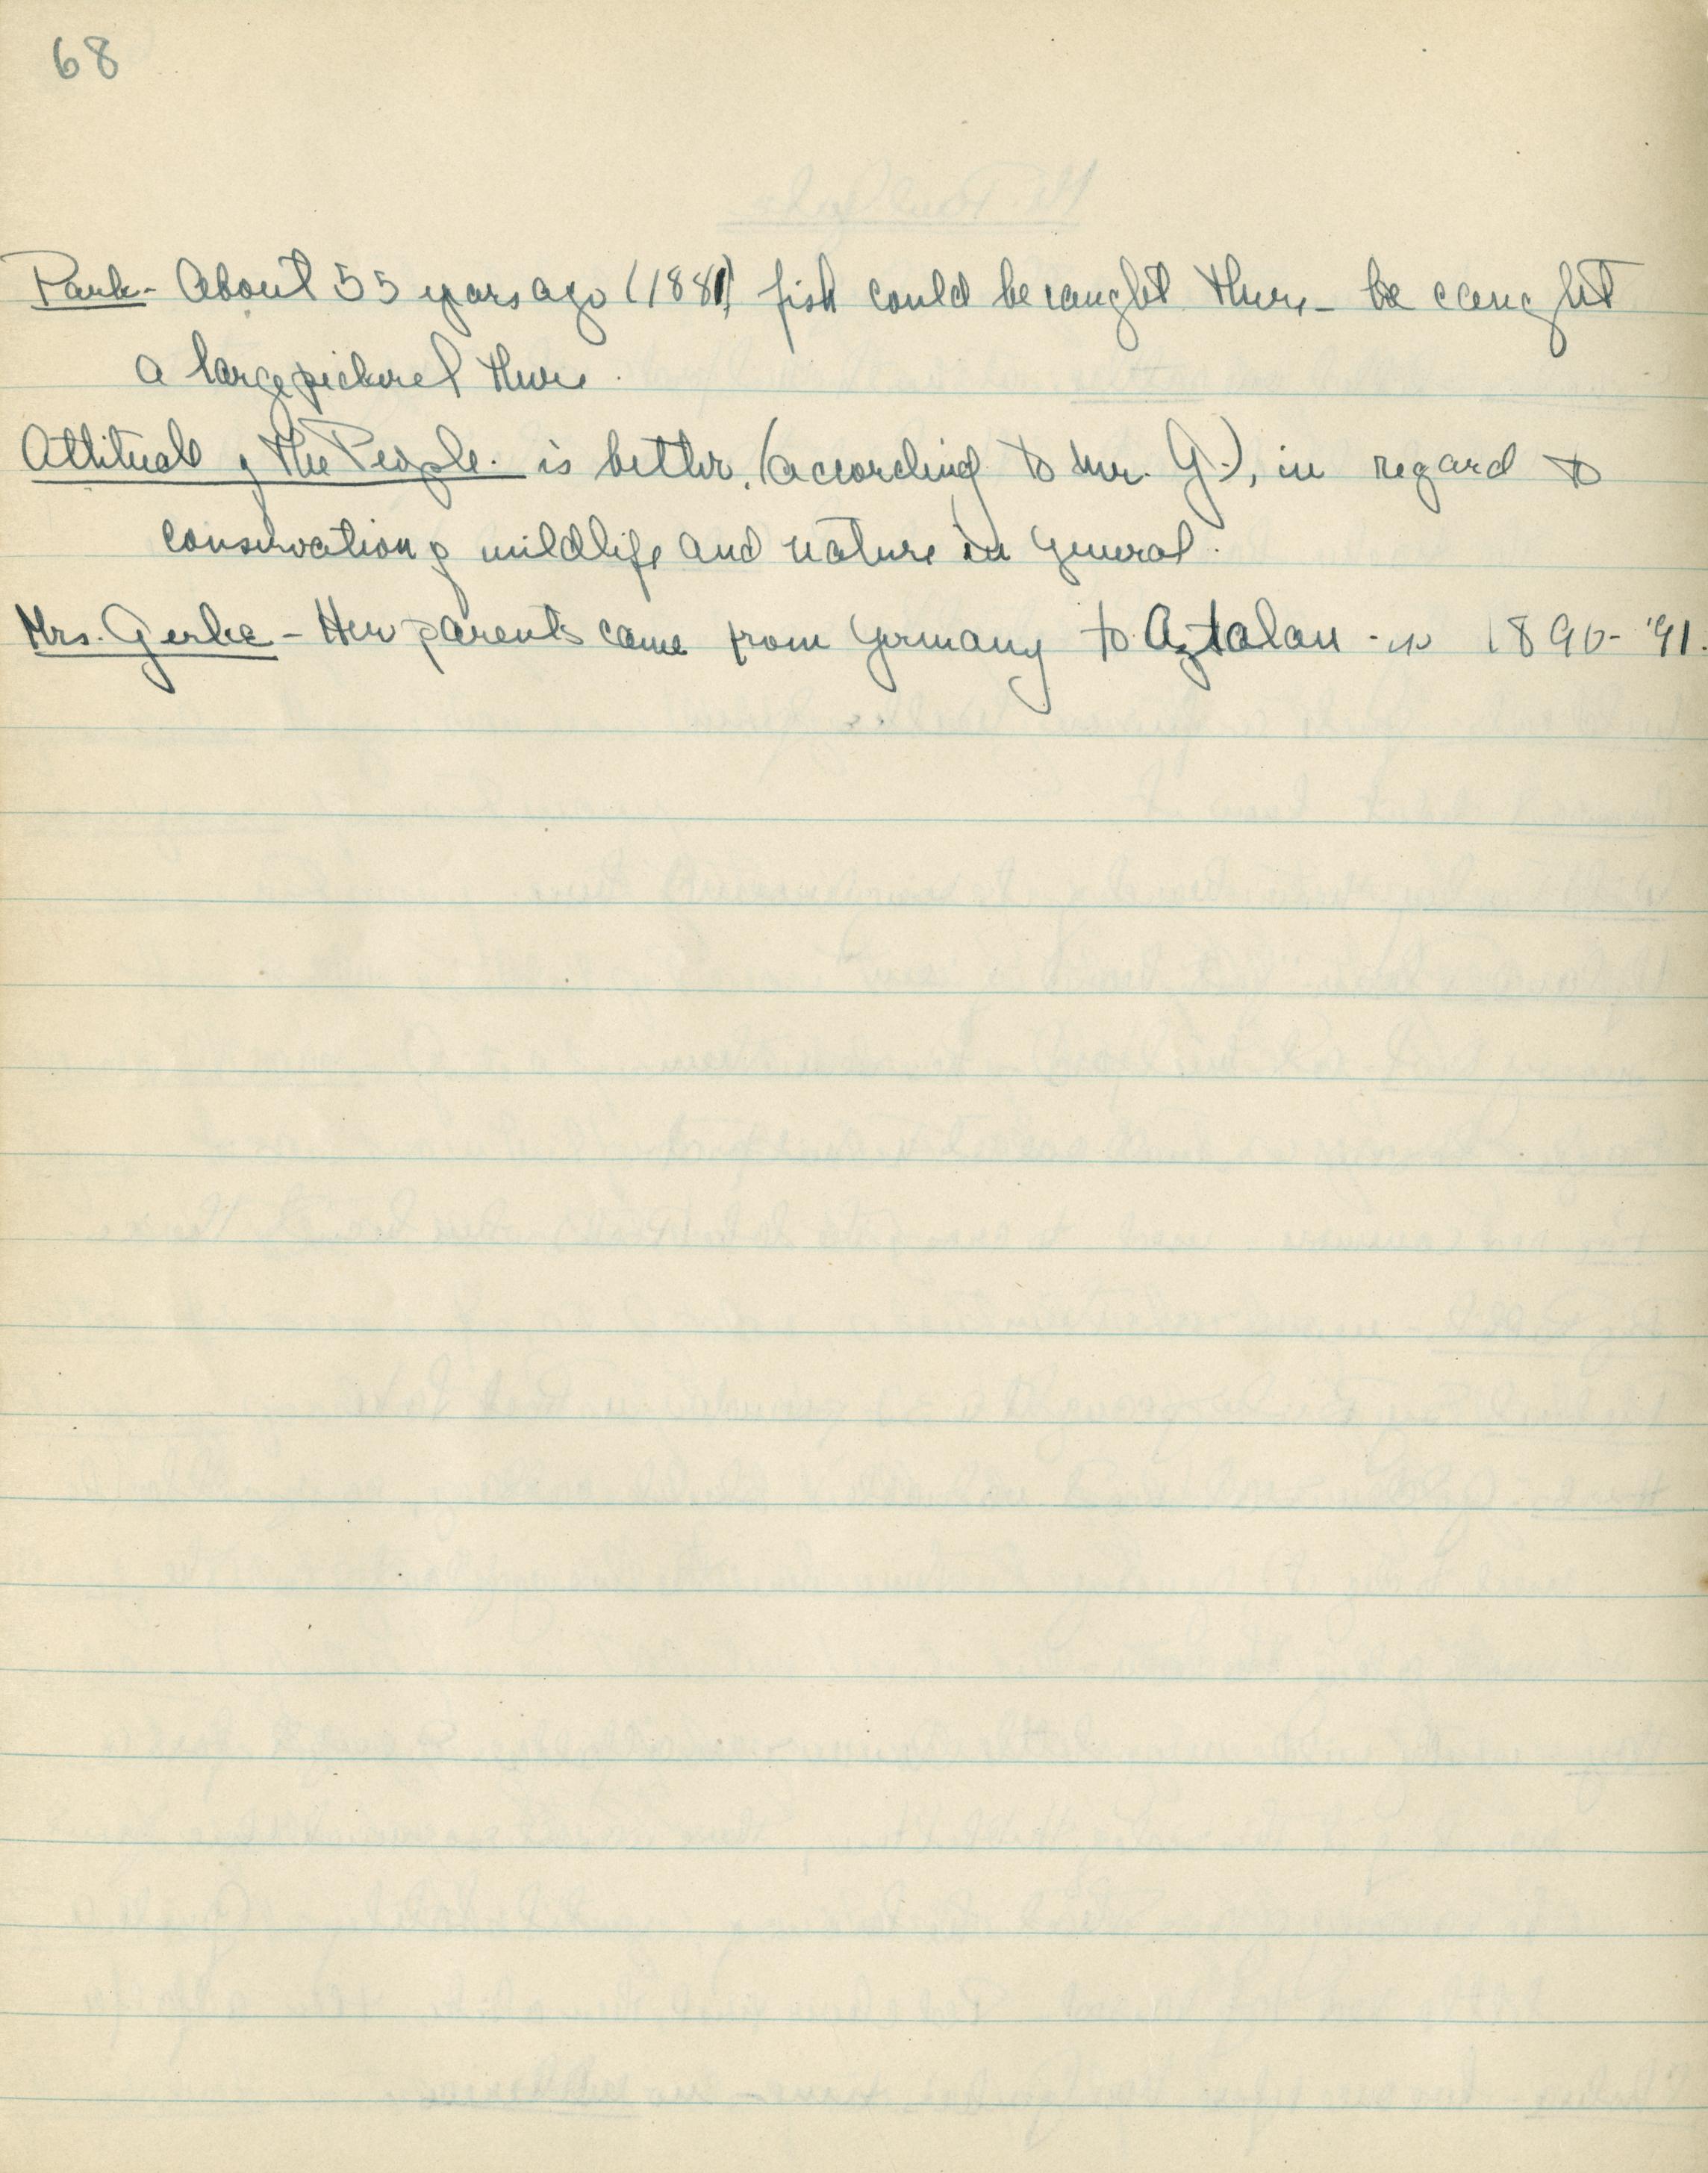 68
Park - About 55 years ago (1881) fish could be caught there - he caught
a large pickerel there.
Attitude of the People. is better, (according to Mr. G.), in regard to
conservation of wildlife and nature in general.
Mrs. Gerke - Her parents came from Germany to Aztalan - in 1890-'91.